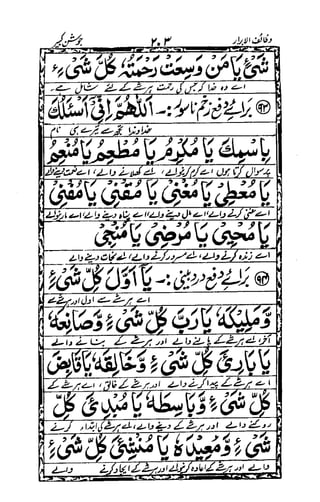 جوشن کبیر ۲۰۳ وظائف الابرار
شَیْءٍ یَا مَنْ وَسِعَتْ رَحْمَتُهُ كُلَّ شَیْءٍ
اے وہ خدا کہ جس کی رحمت ہر شے کے لئے شامل ہے۔
﴿۹۳﴾ برائے دفع زخم ناسور:۔ اَللّٰهُمَّ اِنِّیْ اَسْئَلُكَ
خداوندا تجھ سے تیرے ہی نام
بِاسْمِكَ یَا مُكْرِمُ یَا مُطْعِمُ یَا مُنْعِمُ
پر سوال کرتا ہوں اے کرم کرنیوالے، اے کھلانے والے، اے نعمت دینے والے
یَا مُعْطِیْ یَا مُغْنِیْ یَا مُقْنِیْ یَا مُفْنِیْ
اے غنی کرنے والے اے پناہ دینے والے اے مارنیوالے
یَا مُحْیِیْ یَا مُرْضِیْ یَا مُنْجِیْ
اے زندہ کرنے والے، اے مسرور کرنے والے، اے نجات دینے والے
﴿۹۴﴾ برائے دفع درد بینی:۔ یَا اَوَّلَ كُلِّ شَیْءٍ
اے ہر شے سے اول اور ہر شے سے
وَّمَلِیْكَهٗ یَا رَبَّ كُلِّ شَیْءٍ وَّصَانِعَهٗ
آخر، اے ہر شے کے پالنے والے اور ہر شے کے بنانے والے
یَا بَارِئَ كُلِّ شَیْءٍ وَّخَالِقَهٗ یَا قَابِضَ
اے ہر شے کے پیدا کرنے والے اور ہر شے کے خالق، اے ہر شے کے
كُلِّ شَیْءٍ وَّبَاسِطَهٗ یَا مُبْدِئَ كُلِّ
روکنے والے اور ہر شے کے پھیلانے والے، اے ہر شے کی ابتداء کرنے
شَیْءٍ وَّمُعِیْدَهٗ یَا مُنْشِئَ كُلِّ شَیْءٍ
والے اور ہر شے کے اعادہ کرنیوالے اور ہر شے کے ایجاد کرنے والے